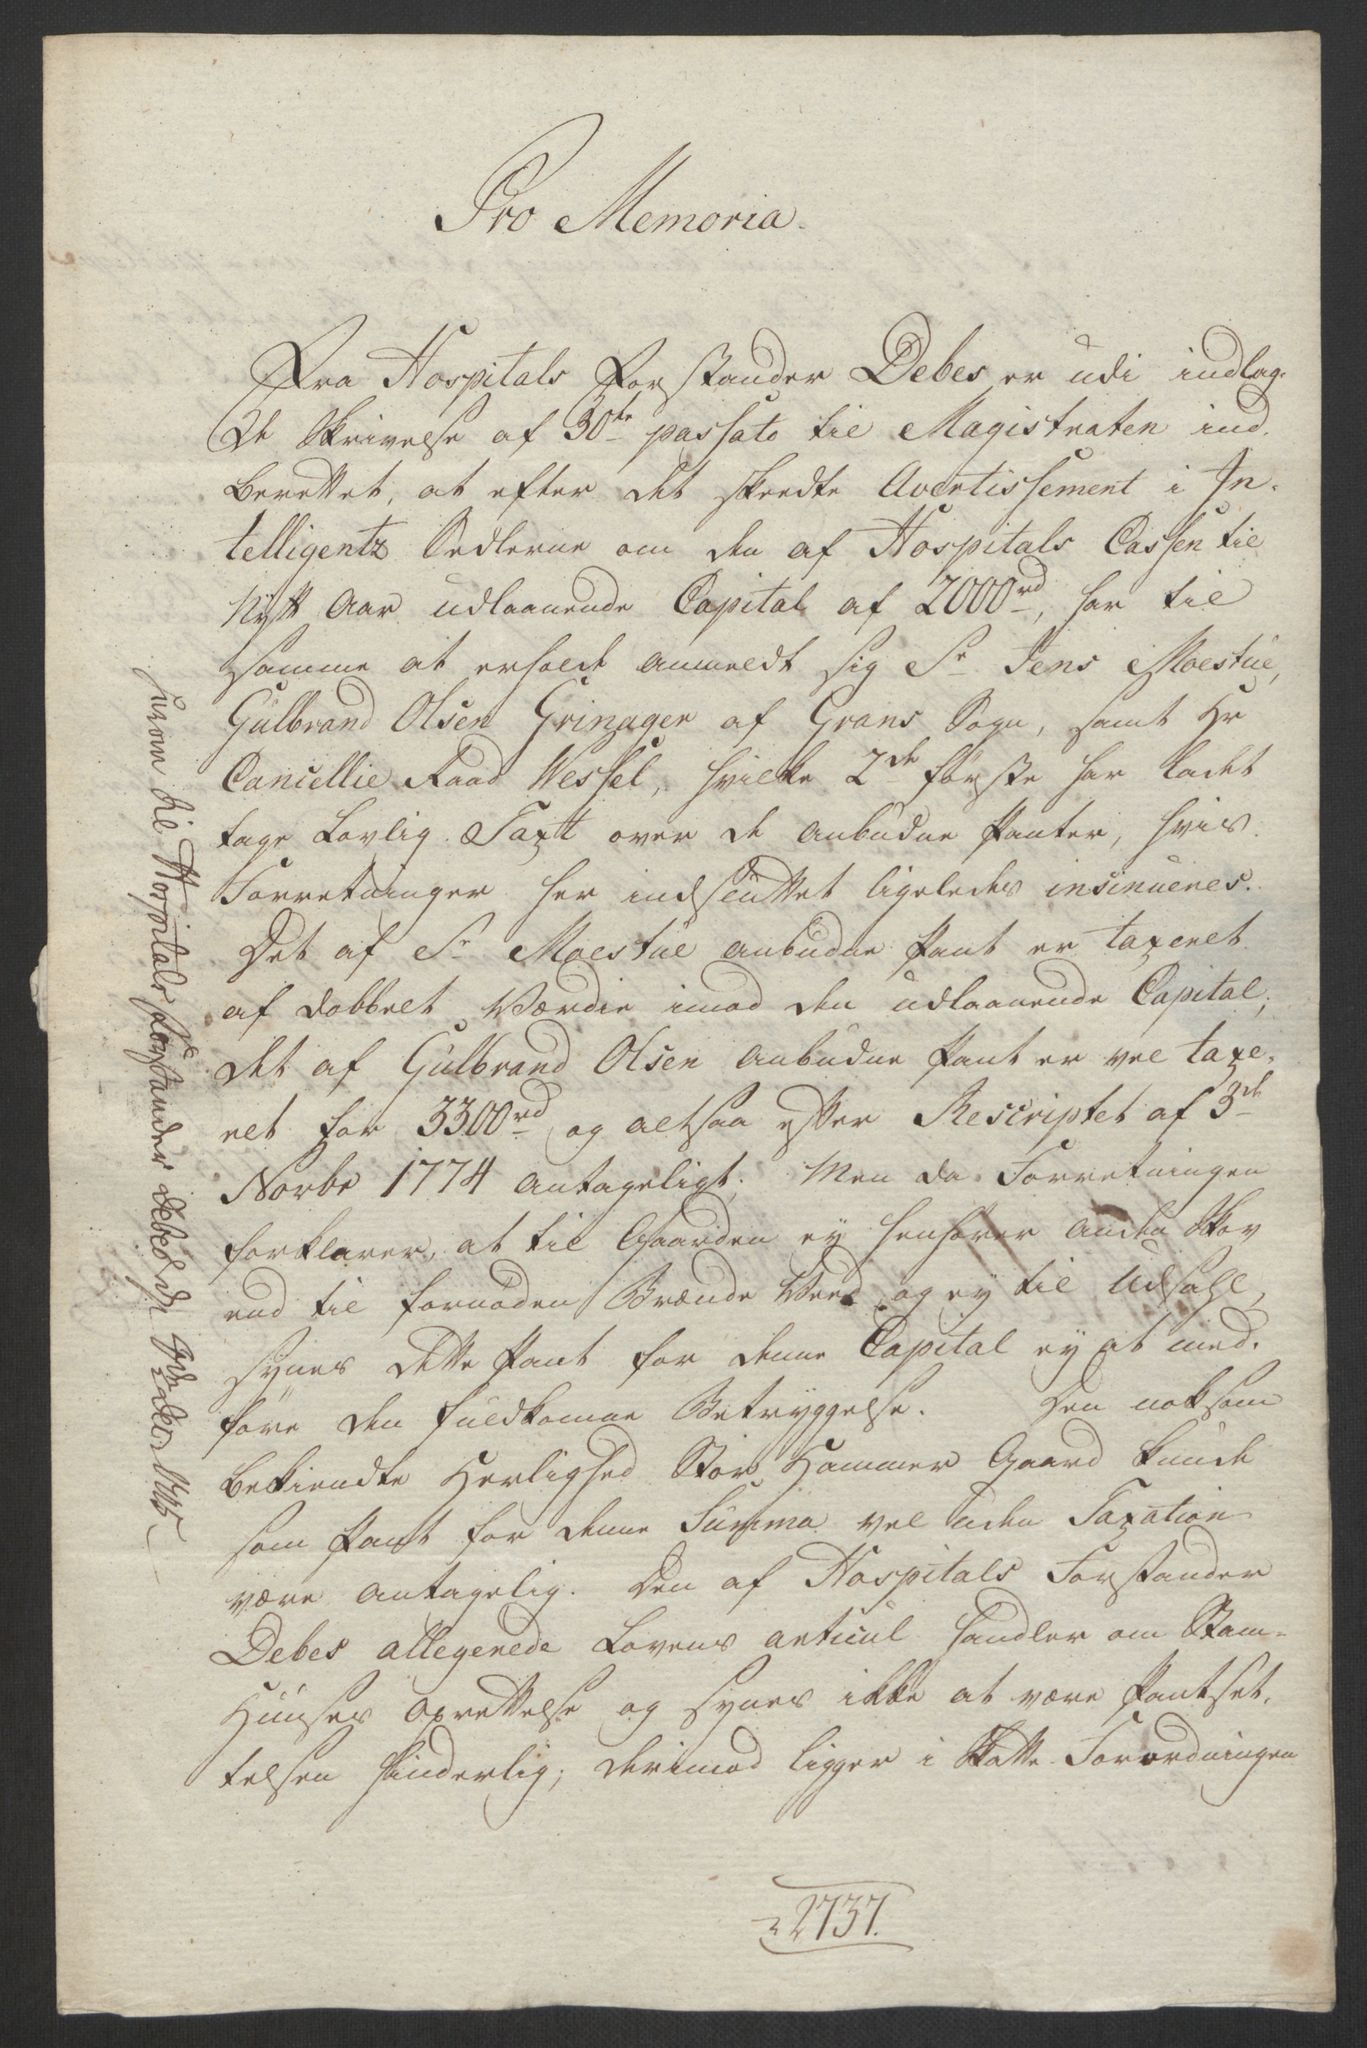 Pro Memoria.
Fra Hospitals Forstander Debes er udi indlag-
de Skrivelse af 30te passato til Magistraten ind-
berettet, at efter det skeedte Avertissement i In-
telligentz Sedlerne om den af Hospitals Cassen til
Nytt Aar udlaanende Capital af 2000rd, har til
samme at erholde anmeldt sig Sr Jens Moestue,
Gulbrand Olsen Grinager af Grans Sogn, samt Hr
Cancellie Raad Wessel, hvilke 2de første har ladet
tage Lovlig Taxt over de anbudne Panter, hvis
Forretninger her indsluttet ligeledes insinueres.
Det af Sr Moestue anbudne Pant er taxeret
af dobbelt Værdie imod den udlaanende Capital;
det af Gulbrand Olsen anbudne Pant er vel taxe-
ret for 3300rd og altsaa efter Rescriptet af 3de
Novbr 1774 antageligt. Men da Forretningen
forklarer, at til Gaarden ey henhører anden Skov
end til fornøden Brænde Veed og ey til Udsalg,
synes dette Pant for denne Capital ey at med-
føre den fuldkomne Betryggelse. Den noksom
bekiendte Herlighed Stor Hammer Gaard kunde
som Pant for denne Summa vel uden Taxation
være antagelig. Den af Hospitals Forstander
Debes allegerede Lovens articul handler om Stam-
Huuses oprettelse og synes ikke at være Pantset-
telsen hinderlig; derimod ligger i Skatte Forordningen
2737.
til Hospitals Forstander Debes